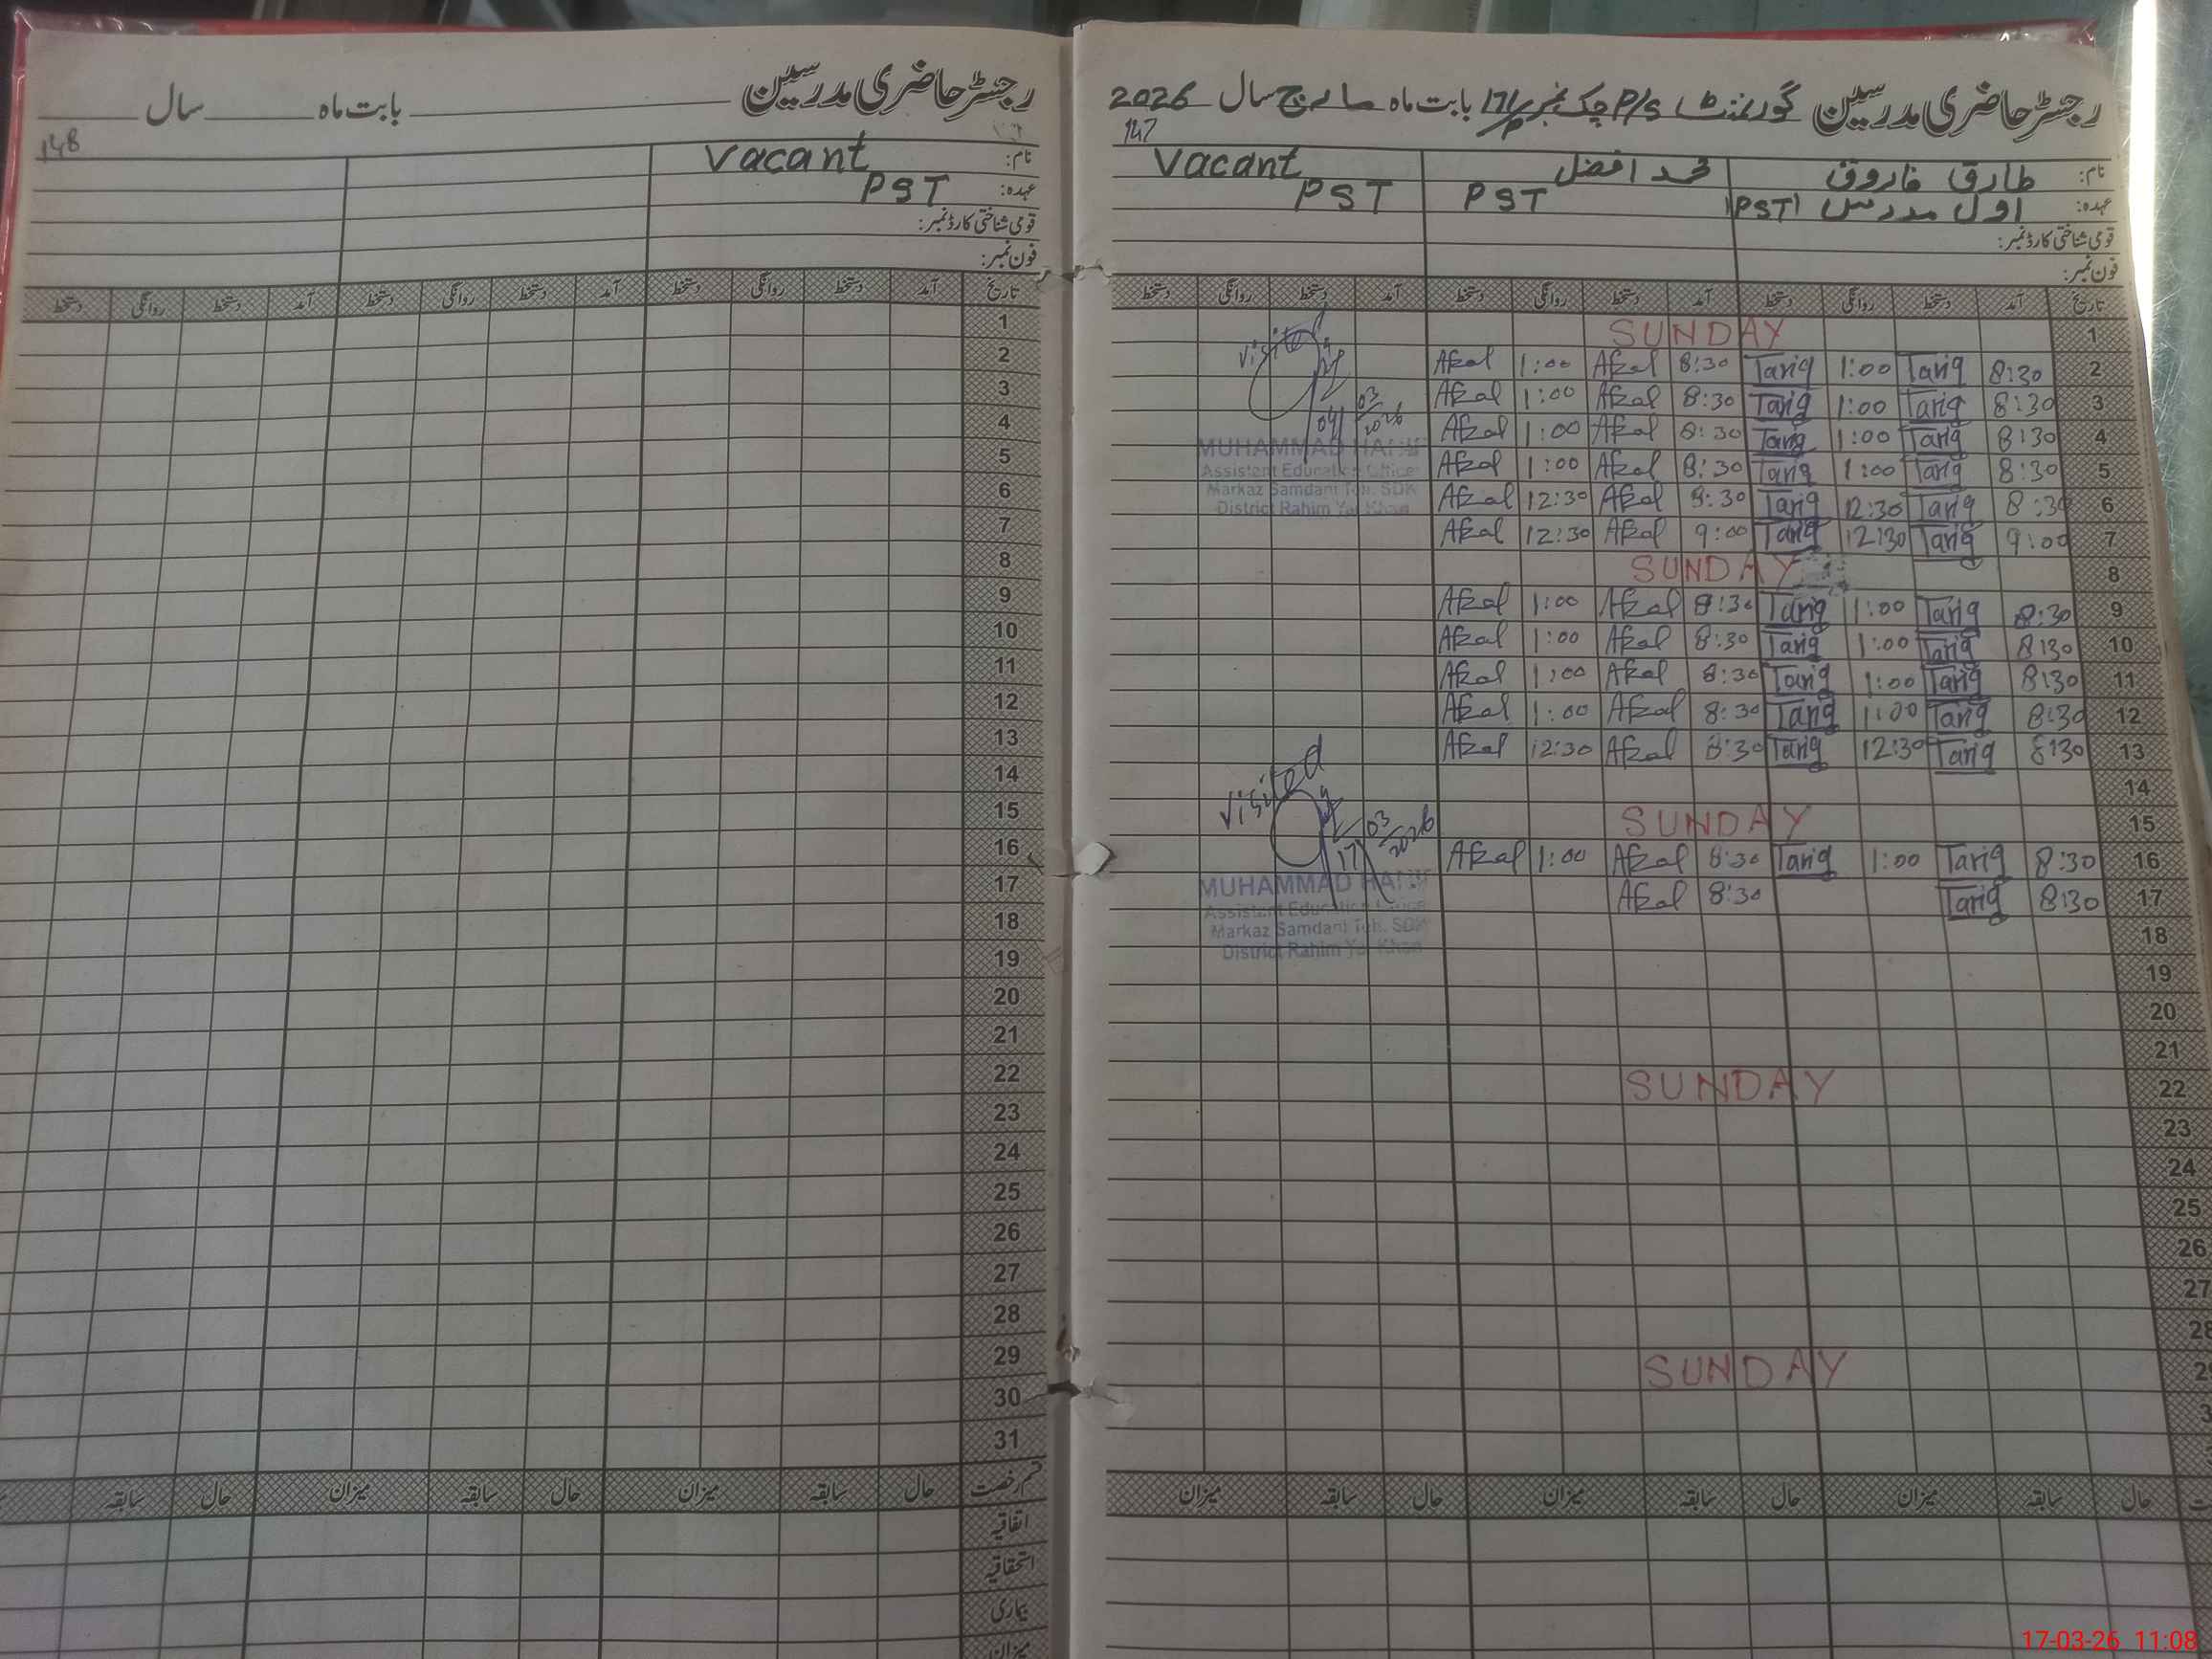 رجسٹر حاضری مدرسین گورنمنٹ P/S چک نمبر 171/P بابت ماہ مارچ سال 2026
147
نام: طارق فاروق محمد افضل Vacant
عہدہ: اول مدرس PST PST PST
قومی شناختی کارڈ نمبر:
فون نمبر:
تاریخ آمد دستخط روانگی دستخط آمد دستخط روانگی دستخط آمد دستخط روانگی دستخط
1 SUNDAY
2 8:30 Tariq 1:00 Tariq 8:30 Afzal 1:00 Afzal
3 8:30 Tariq 1:00 Tariq 8:30 Afzal 1:00 Afzal
4 8:30 Tariq 1:00 Tariq 8:30 Afzal 1:00 Afzal
5 8:30 Tariq 1:00 Tariq 8:30 Afzal 1:00 Afzal
6 8:30 Tariq 12:30 Tariq 8:30 Afzal 12:30 Afzal
7 9:00 Tariq 12:30 Tariq 9:00 Afzal 12:30 Afzal
8 SUNDAY
9 8:30 Tariq 1:00 Tariq 8:30 Afzal 1:00 Afzal
10 8:30 Tariq 1:00 Tariq 8:30 Afzal 1:00 Afzal
11 8:30 Tariq 1:00 Tariq 8:30 Afzal 1:00 Afzal
12 8:30 Tariq 1:00 Tariq 8:30 Afzal 1:00 Afzal
13 8:30 Tariq 12:30 Tariq 8:30 Afzal 12:30 Afzal
14
15 SUNDAY
16 8:30 Tariq 1:00 Tariq 8:30 Afzal 1:00 Afzal
17 8:30 Tariq 8:30 Afzal
18
19
20
21
22 SUNDAY
23
24
25
26
27
28
29 SUNDAY
Visited
04/03/2026
MUHAMMAD HANIF
Assistent Education Officer
Markaz Samdani Teh. SDK
District Rahim Yar Khan
Visited
17/03/2026
MUHAMMAD HANIF
Assistent Education Officer
Markaz Samdani Teh. SDK
District Rahim Yar Khan
حال سابقہ میزان حال سابقہ میزان حال سابقہ میزان
رجسٹر حاضری مدرسین بابت ماہ سال
148
نام: Vacant
عہدہ: PST
قومی شناختی کارڈ نمبر:
فون نمبر:
تاریخ آمد دستخط روانگی دستخط آمد دستخط روانگی دستخط آمد دستخط روانگی دستخط
1
2
3
4
5
6
7
8
9
10
11
12
13
14
15
16
17
18
19
20
21
22
23
24
25
26
27
28
29
30
31
قسم رخصت حال سابقہ میزان حال سابقہ میزان حال سابقہ
اتفاقیہ
استحقاقیہ
بیماری
میزان
17-03-26 11:08